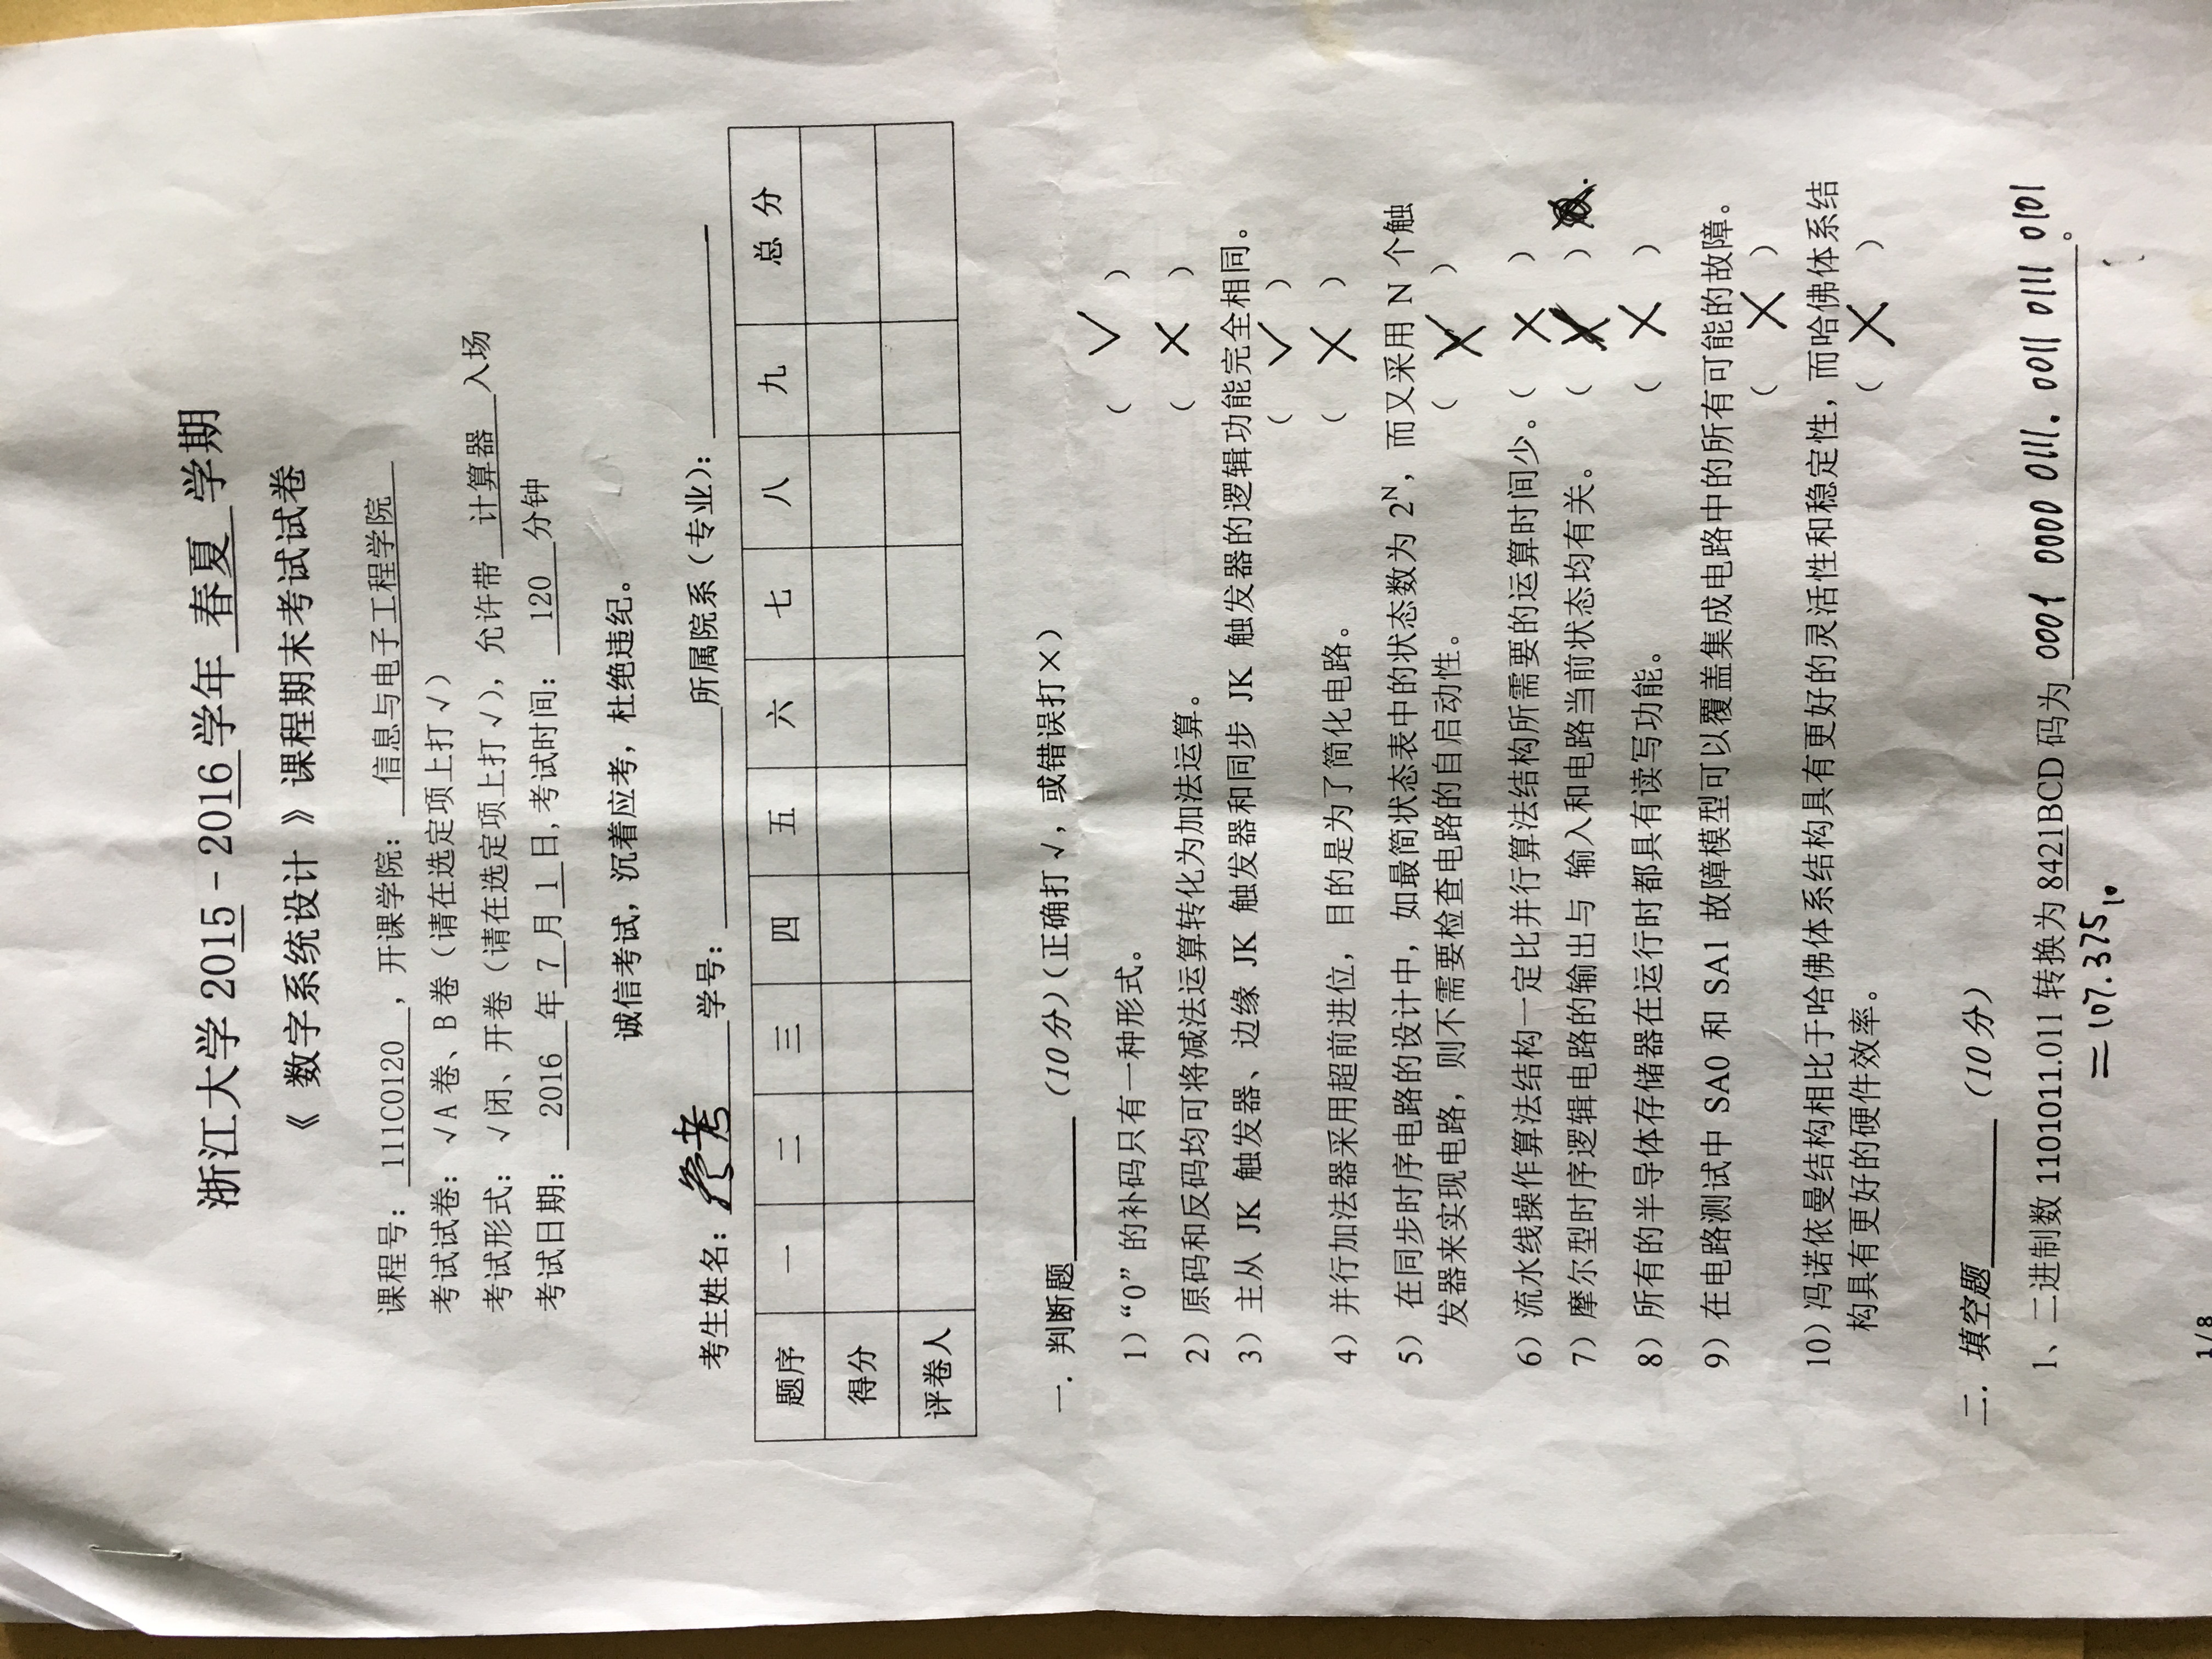 浙江大学 2015 - 2016 学年 春夏 学期
《 数字系统设计 》课程期末考试试卷
课程号： 111C0120 ，开课学院： 信息与电子工程学院
考试试卷：√A 卷、B 卷（请在选定项上打√）
考试形式：√闭、开卷（请在选定项上打√），允许带 计算器 入场
考试日期： 2016 年 7 月 1 日,考试时间： 120 分钟
诚信考试，沉着应考，杜绝违纪。
考生姓名： 参考 学号： 所属院系（专业）：
题序 一 二 三 四 五 六 七 八 九 总 分
得分
评卷人
一．判断题 （10 分）（正确打√，或错误打×）
1）“0”的补码只有一种形式。 （ √ ）
2）原码和反码均可将减法运算转化为加法运算。 （ × ）
3）主从 JK 触发器、边缘 JK 触发器和同步 JK 触发器的逻辑功能完全相同。
（ √ ）
4）并行加法器采用超前进位，目的是为了简化电路。 （ × ）
5） 在同步时序电路的设计中，如最简状态表中的状态数为 2^N，而又采用 N 个触
发器来实现电路，则不需要检查电路的自启动性。 （ ）
6）流水线操作算法结构一定比并行算法结构所需要的运算时间少。（ × ）
7）摩尔型时序逻辑电路的输出与 输入和电路当前状态均有关。 （ × ）
8）所有的半导体存储器在运行时都具有读写功能。 （ × ）
9）在电路测试中 SA0 和 SA1 故障模型可以覆盖集成电路中的所有可能的故障。
（ × ）
10）冯诺依曼结构相比于哈佛体系结构具有更好的灵活性和稳定性，而哈佛体系结
构具有更好的硬件效率。 （ × ）
二．填空题 （10 分）
1、二进制数 1101011.011 转换为 8421BCD 码为 0001 0000 0111. 0011 0111 0101 。
= 107.375₁₀
1 / 8